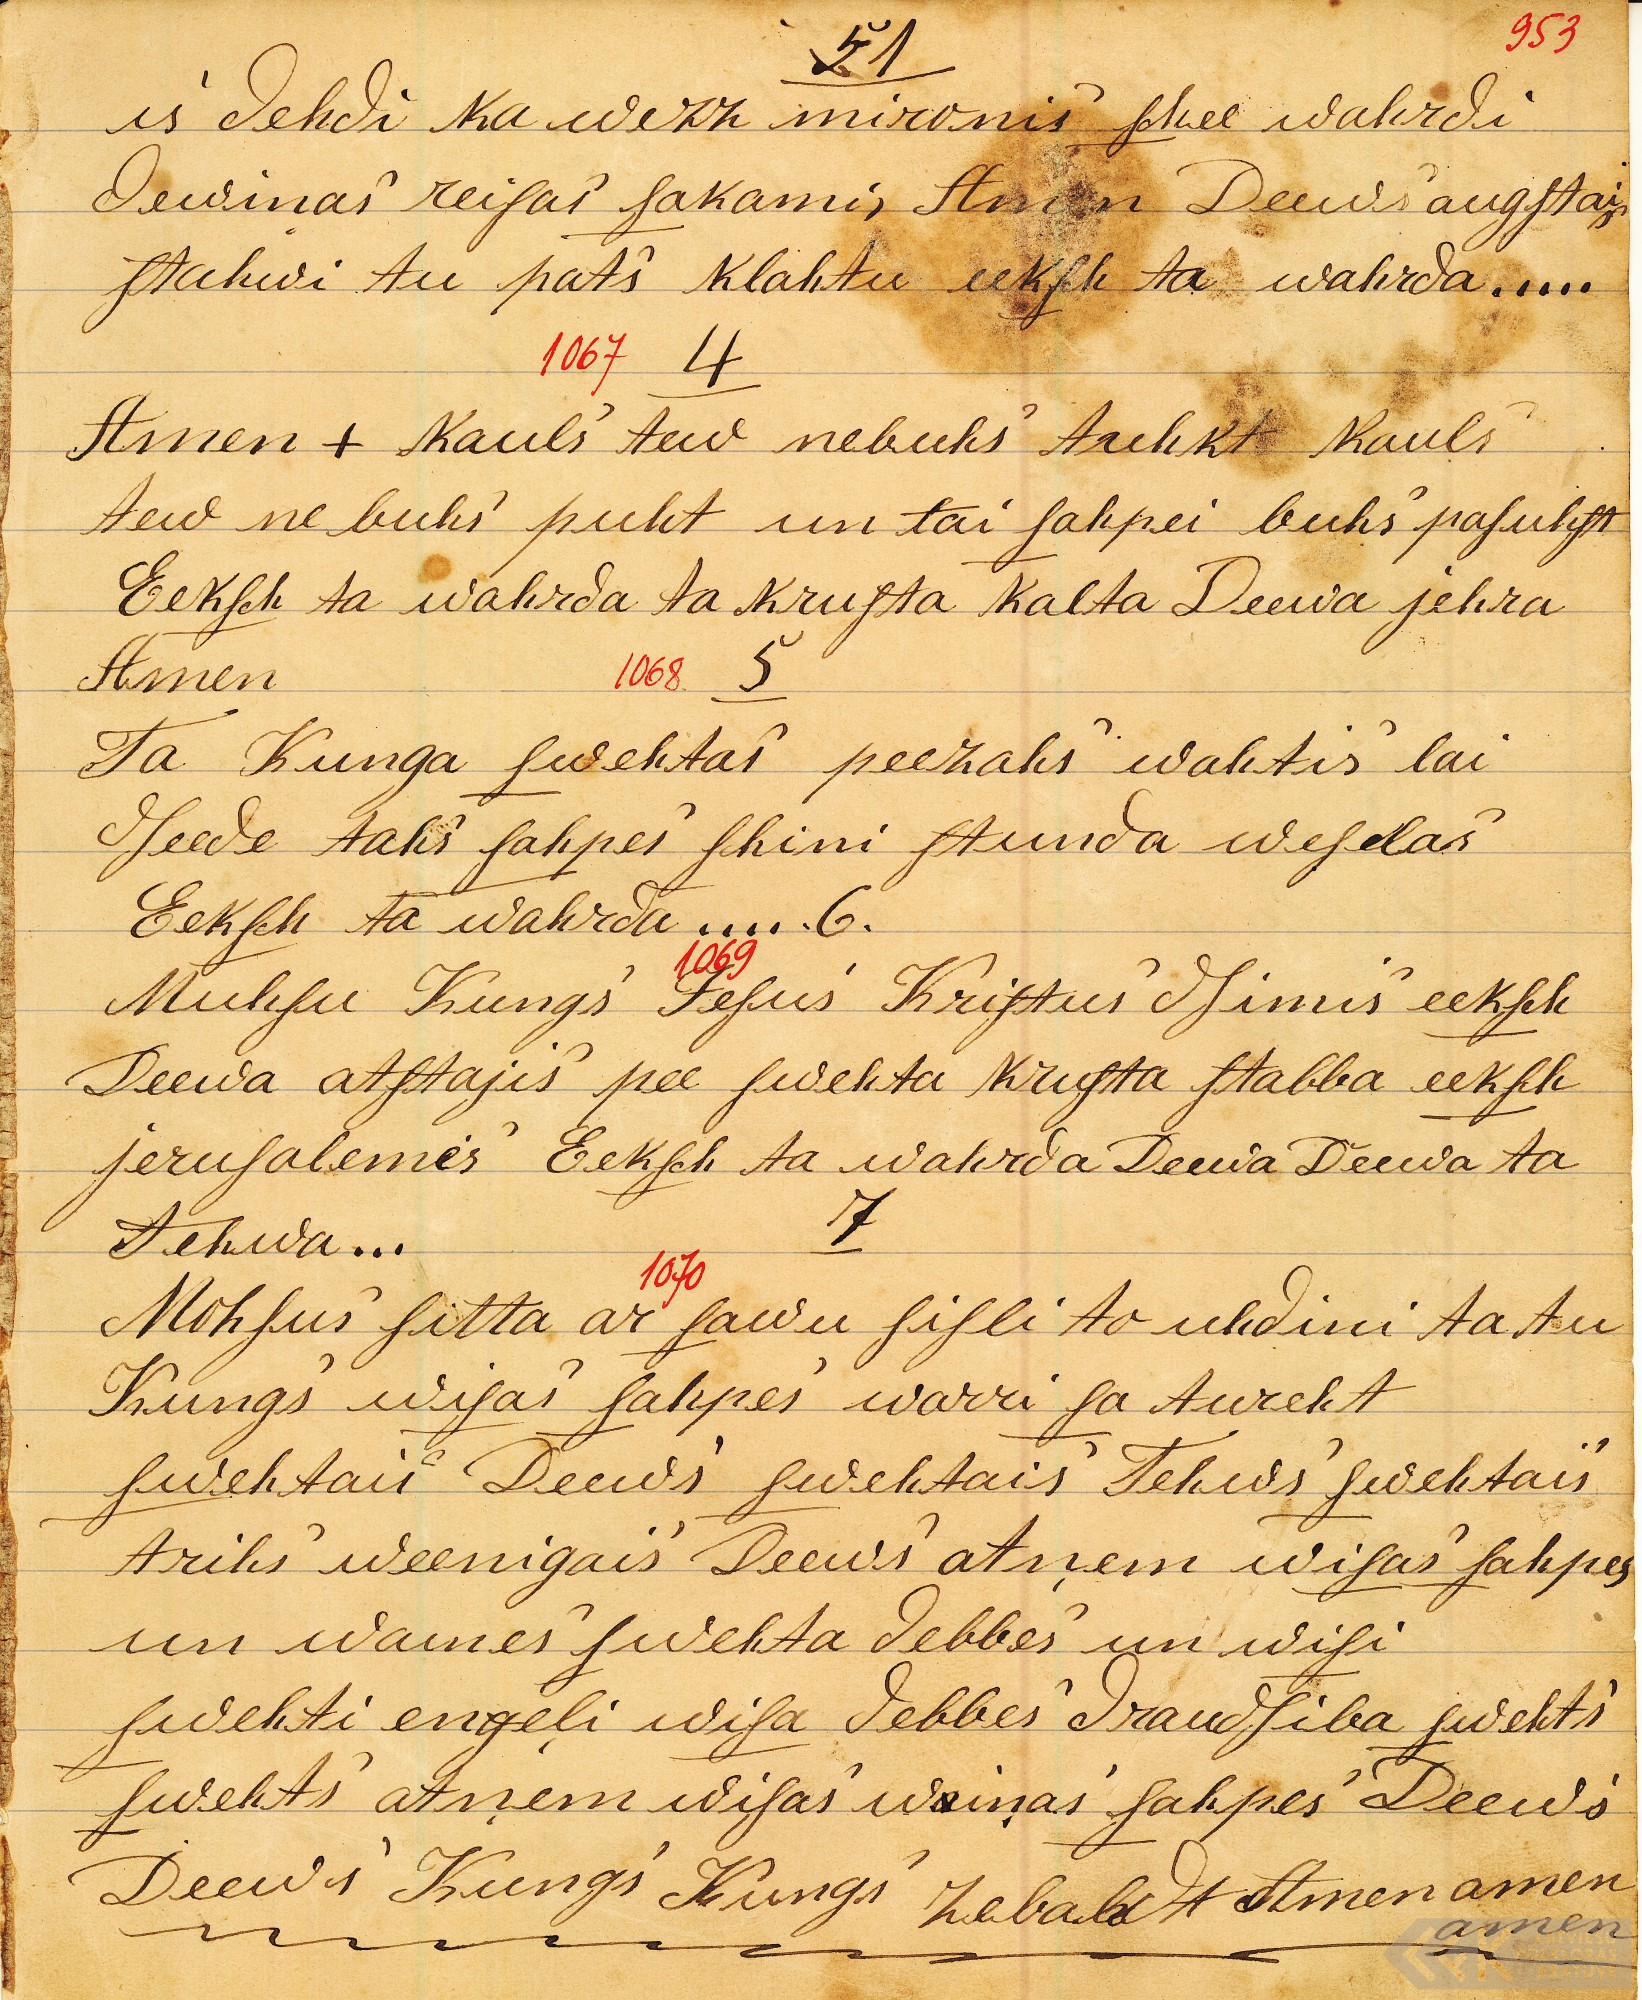 51 953
is dehdi ka wezz mironis schee wahrdi
dewinas reisas sakami, Amen Deews augstais
stahwi tu pats klahtu eeksch ta wahrda.....
1067 4
Amen + Kauls tew nebuhs truhkt Kauls
tew ne buhs puht un tai sahpei buhs pasuhst
Eeksch ta wahrda ta krusta kalta Deewa jehra
Amen 1068 5
Ta Kunga swehtas peezahs wahtis lai
dseede tahs sahpes schini stunda weselas
Eeksch ta wahrda ..... 6.
1069
Muhsu Kungs Jesus Kristus dsimis eeksch
Deewa atstajis pee swehta krusta stabba eeksch
jerusalemes Eeksch ta wahrda Deewa Deewa ta
Tehwa... 7
1070
Mohsus sitta ar sawu sisli to uhdini ta tu
Kungs wisas sahpes warri sa tureht
swehtais Deews swehtais Tehws swehtais
trihs weenigais Deews atņem wisas sahpes
un waines swehta debbes un wisi
swehti engeļi wisa debbes draudsiba swehts
swehts atņem wisas wiņas sahpes Deews
Deews Kungs Kungs Amen amen
amen